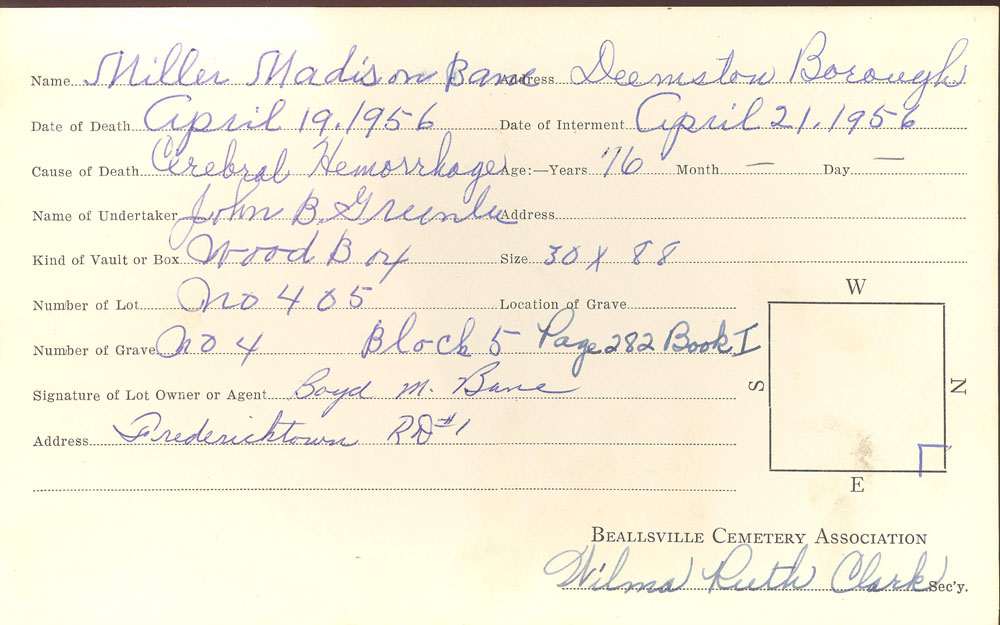 Name Miller Madison Bane Address Deemston Borough
Date of Death April 19. 1956 Date of Interment April 21. 1956
Cause of Death Cerebral Hemorrhage Age:—Years 76 Month — Day —
Name of Undertaker John B. Greenlee Address
Kind of Vault or Box Wood Box Size 30 X 88
Number of Lot No 405 Location of Grave
Number of Grave No 4 Block 5 Page 282 Book I
Signature of Lot Owner or Agent Boyd M. Bane
Address Fredericktown RD #1
W
S
N
E
BEALLSVILLE CEMETERY ASSOCIATION
Wilma Ruth Clark Sec'y.